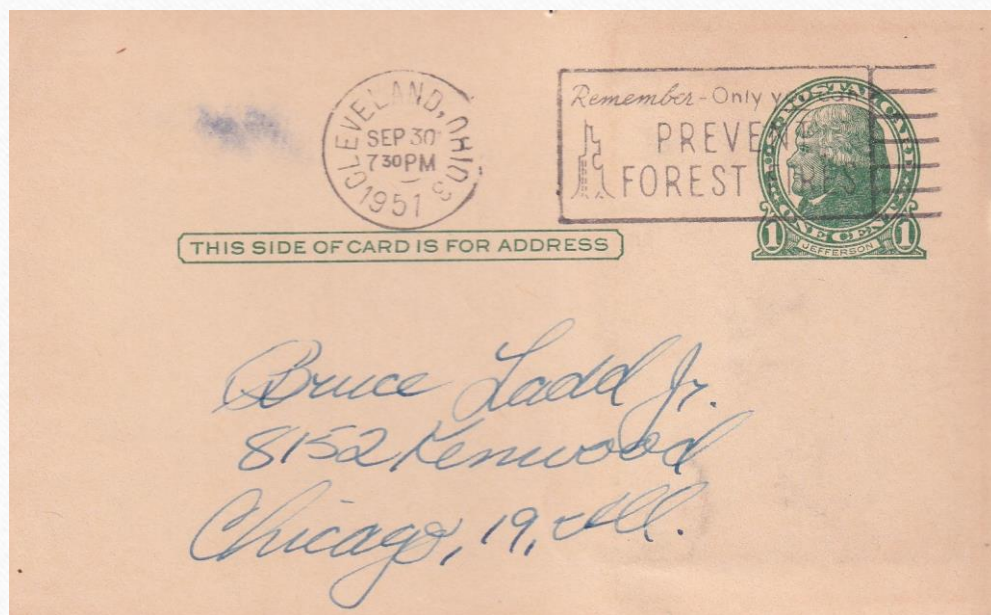 CLEVELAND, OHIO 3
SEP 30
7 30 PM
1951
Remember - Only you can
PREVENT
FOREST FIRES
U.S. POSTAL CARD
ONE CENT
1 JEFFERSON 1
THIS SIDE OF CARD IS FOR ADDRESS
Bruce Ladd Jr.
8152 Kenwood
Chicago, 19, Ill.